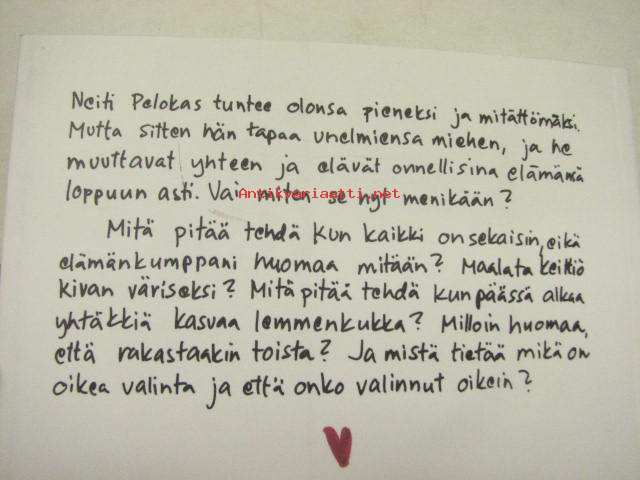 Neiti Pelokas tuntee olonsa pieneksi ja mitättömäksi.
Mutta sitten hän tapaa unelmiensa miehen, ja he
muuttavat yhteen ja elävät onnellisina elämänsä
loppuun asti. Vai miten se nyt menikään?
Antikvariaatti.net
Mitä pitää tehdä kun kaikki on sekaisin, eikä
elämänkumppani huomaa mitään? Maalata keittiö
kivan väriseksi? Mitä pitää tehdä kun päässä alkaa
yhtäkkiä kasvaa lemmenkukka? Milloin huomaa,
että rakastaakin toista? Ja mistä tietää mikä on
oikea valinta ja että onko valinnut oikein?